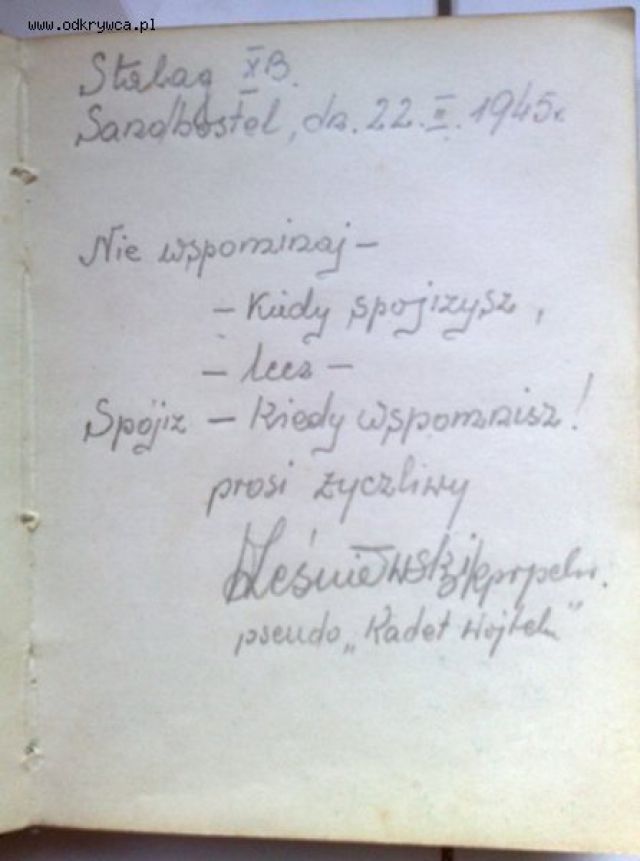 www.odkrywca.pl
Stalag XB.
Sandbostel, dn. 22. II. 1945r.
Nie wspominaj –
– Kiedy spojrzysz,
– lecz –
Spójrz – Kiedy wspomnisz!
prosi życzliwy
Leśniewski kprpchr.
pseudo „Kadet Wojtek”